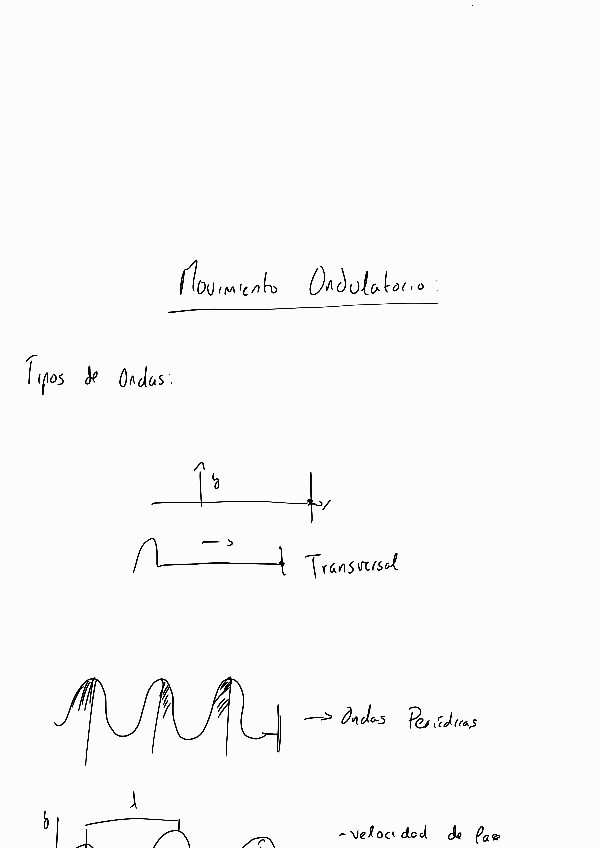 Movimiento Ondulatorio:
Tipos de Ondas:
y
x
Transversal
→ Ondas Periódicas
λ
y
- velocidad de fase